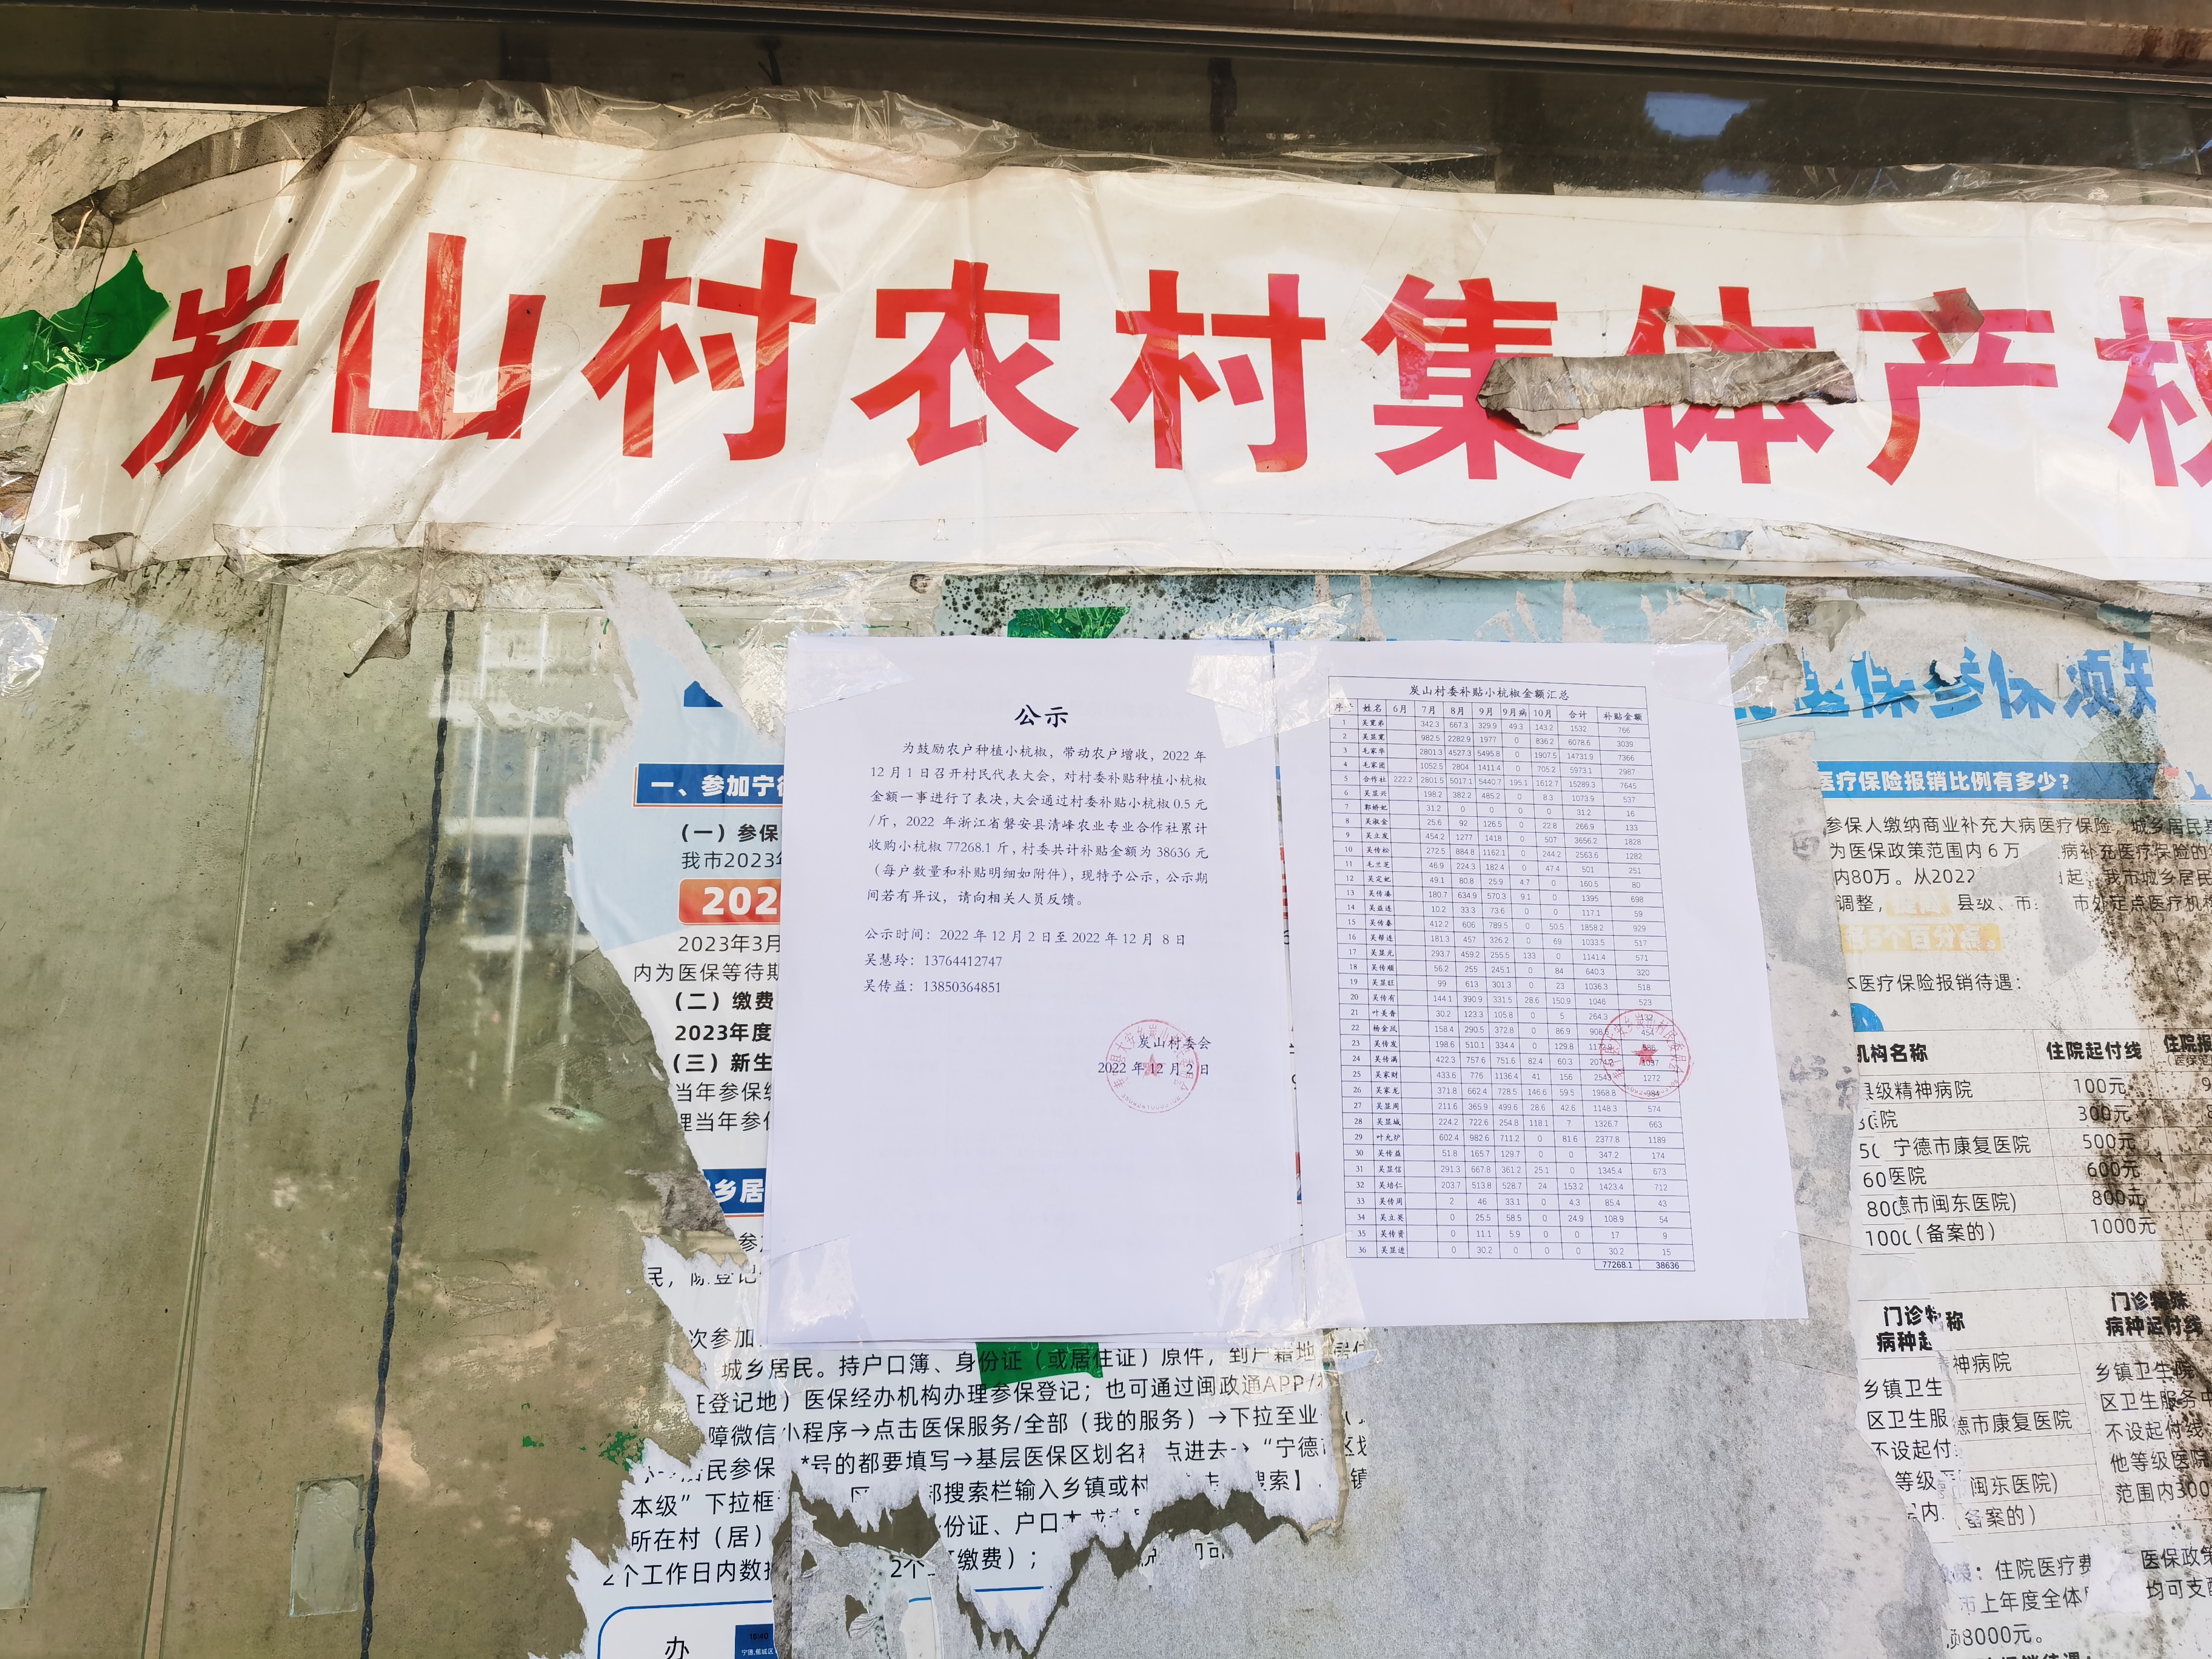 炭山村农村集体产权
公示
为鼓励农户种植小杭椒，带动农户增收，2022 年
12 月 1 日召开村民代表大会，对村委补贴种植小杭椒
金额一事进行了表决，大会通过村委补贴小杭椒 0.5 元
/斤，2022 年浙江省磐安县清峰农业专业合作社累计
收购小杭椒 77268.1 斤，村委共计补贴金额为 38636 元
（每户数量和补贴明细如附件），现特予公示，公示期
间若有异议，请向相关人员反馈。
公示时间：2022 年 12 月 2 日至 2022 年 12 月 8 日
吴慧玲：13764412747
吴传益：13850364851
炭山村委会
2022 年 12 月 2 日
炭山村委补贴小杭椒金额汇总
序号 姓名 6月 7月 8月 9月 9月病 10月 合计 补贴金额
1 342.3 667.3 329.9 49.3 143.2 1532 766
2 982.5 2282.9 1977 0 836.2 6078.6 3039
3 毛家华 2801.3 4527.3 5495.8 0 1907.5 14731.9 7366
4 毛家团 1052.5 2804 1411.4 0 705.2 5973.1 2987
5 合作社 222.2 2801.5 5017.1 5440.7 195.1 1612.7 15289.3 7645
6 吴显兴 198.2 382.2 485.2 0 8.3 1073.9 537
7 郭娇妃 31.2 0 0 0 0 31.2 16
8 吴淑金 25.6 92 126.5 0 22.8 266.9 133
9 吴立发 454.2 1277 1418 0 507 3656.2 1828
10 吴传松 272.5 884.8 1162.1 0 244.2 2563.6 1282
11 毛兰芝 46.9 224.3 182.4 0 47.4 501 251
12 吴定妃 49.1 80.8 25.9 4.7 0 160.5 80
13 吴传凑 180.7 634.9 570.3 9.1 0 1395 698
14 吴益连 10.2 33.3 73.6 0 0 117.1 59
15 吴传泰 412.2 606 789.5 0 50.5 1858.2 929
16 吴帮连 181.3 457 326.2 0 69 1033.5 517
17 吴显光 293.7 459.2 255.5 133 0 1141.4 571
18 吴传顺 56.2 255 245.1 0 84 640.3 320
19 吴显旺 99 613 301.3 0 23 1036.3 518
20 吴传有 144.1 390.9 331.5 28.6 150.9 1046 523
21 叶美香 30.2 123.3 105.8 0 5 264.3 132
22 杨金凤 158.4 290.5 372.8 0 86.9 908.6 454
23 吴传发 198.6 510.1 334.4 0 129.8
24 吴传满 422.3 757.6 751.6 82.4 60.3 1037
25 吴家财 433.6 776 1136.4 41 156 1272
26 吴家龙 371.8 662.4 728.5 146.6 59.5 1968.8 984
27 吴显周 211.6 365.9 499.6 28.6 42.6 1148.3 574
28 吴显城 224.2 722.6 254.8 118.1 7 1326.7 663
29 叶允炉 602.4 982.6 711.2 0 81.6 2377.8 1189
30 吴传益 51.8 165.7 129.7 0 0 347.2 174
31 吴显信 291.3 667.8 361.2 25.1 0 1345.4 673
32 吴培仁 203.7 513.8 528.7 24 153.2 1423.4 712
33 吴传周 2 46 33.1 0 4.3 85.4 43
34 吴立英 0 25.5 58.5 0 24.9 108.9 54
35 吴传贤 0 11.1 5.9 0 0 17 9
36 吴显进 0 30.2 0 0 0 30.2 15
77268.1 38636
一、参加宁
（一）参保
我市2023
202
2023年3月
内为医保等待期
（二）缴费
2023年度
（三）新生
当年参保
理当年参
乡居
次参加
城乡居民。持户口簿、身份证（或居住证）原件，到户籍地
登记地）医保经办机构办理参保登记；也可通过闽政通APP/
障微信小程序→点击医保服务/全部（我的服务）→下拉至业
居民参保 *号的都要填写→基层医保区划名称 点进去→“宁德
本级”下拉框 搜索栏输入乡镇或村 搜索】
所在村（居） 份证、户口
2个工作日内数 2个 缴费）；
办
医保参保须知
医疗保险报销比例有多少？
参保人缴纳商业补充大病医疗保险 城乡居民
为医保政策范围内 6 万 病补充医疗保险的
内80万。从2022 起，我市城乡居民
调整， 县级、市 市外定点医疗机构
5个百分点。
本医疗保险报销待遇：
机构名称 住院起付线
县级精神病院 100元
医院 300元
宁德市康复医院 500元
60 医院 600元
800 德市闽东医院) 800元
1000 (备案的) 1000元
门诊特 称 门诊特殊
病种起 病种起付线
神病院
乡镇卫生 乡镇卫生院
区卫生服 德市康复医院 区卫生服务中
不设起付 不设起付线
等级 闽东医院) 他等级医院
内 备案的) 范围内300
：住院医疗费 医保政策
市上年度全体 均可支
8000元。